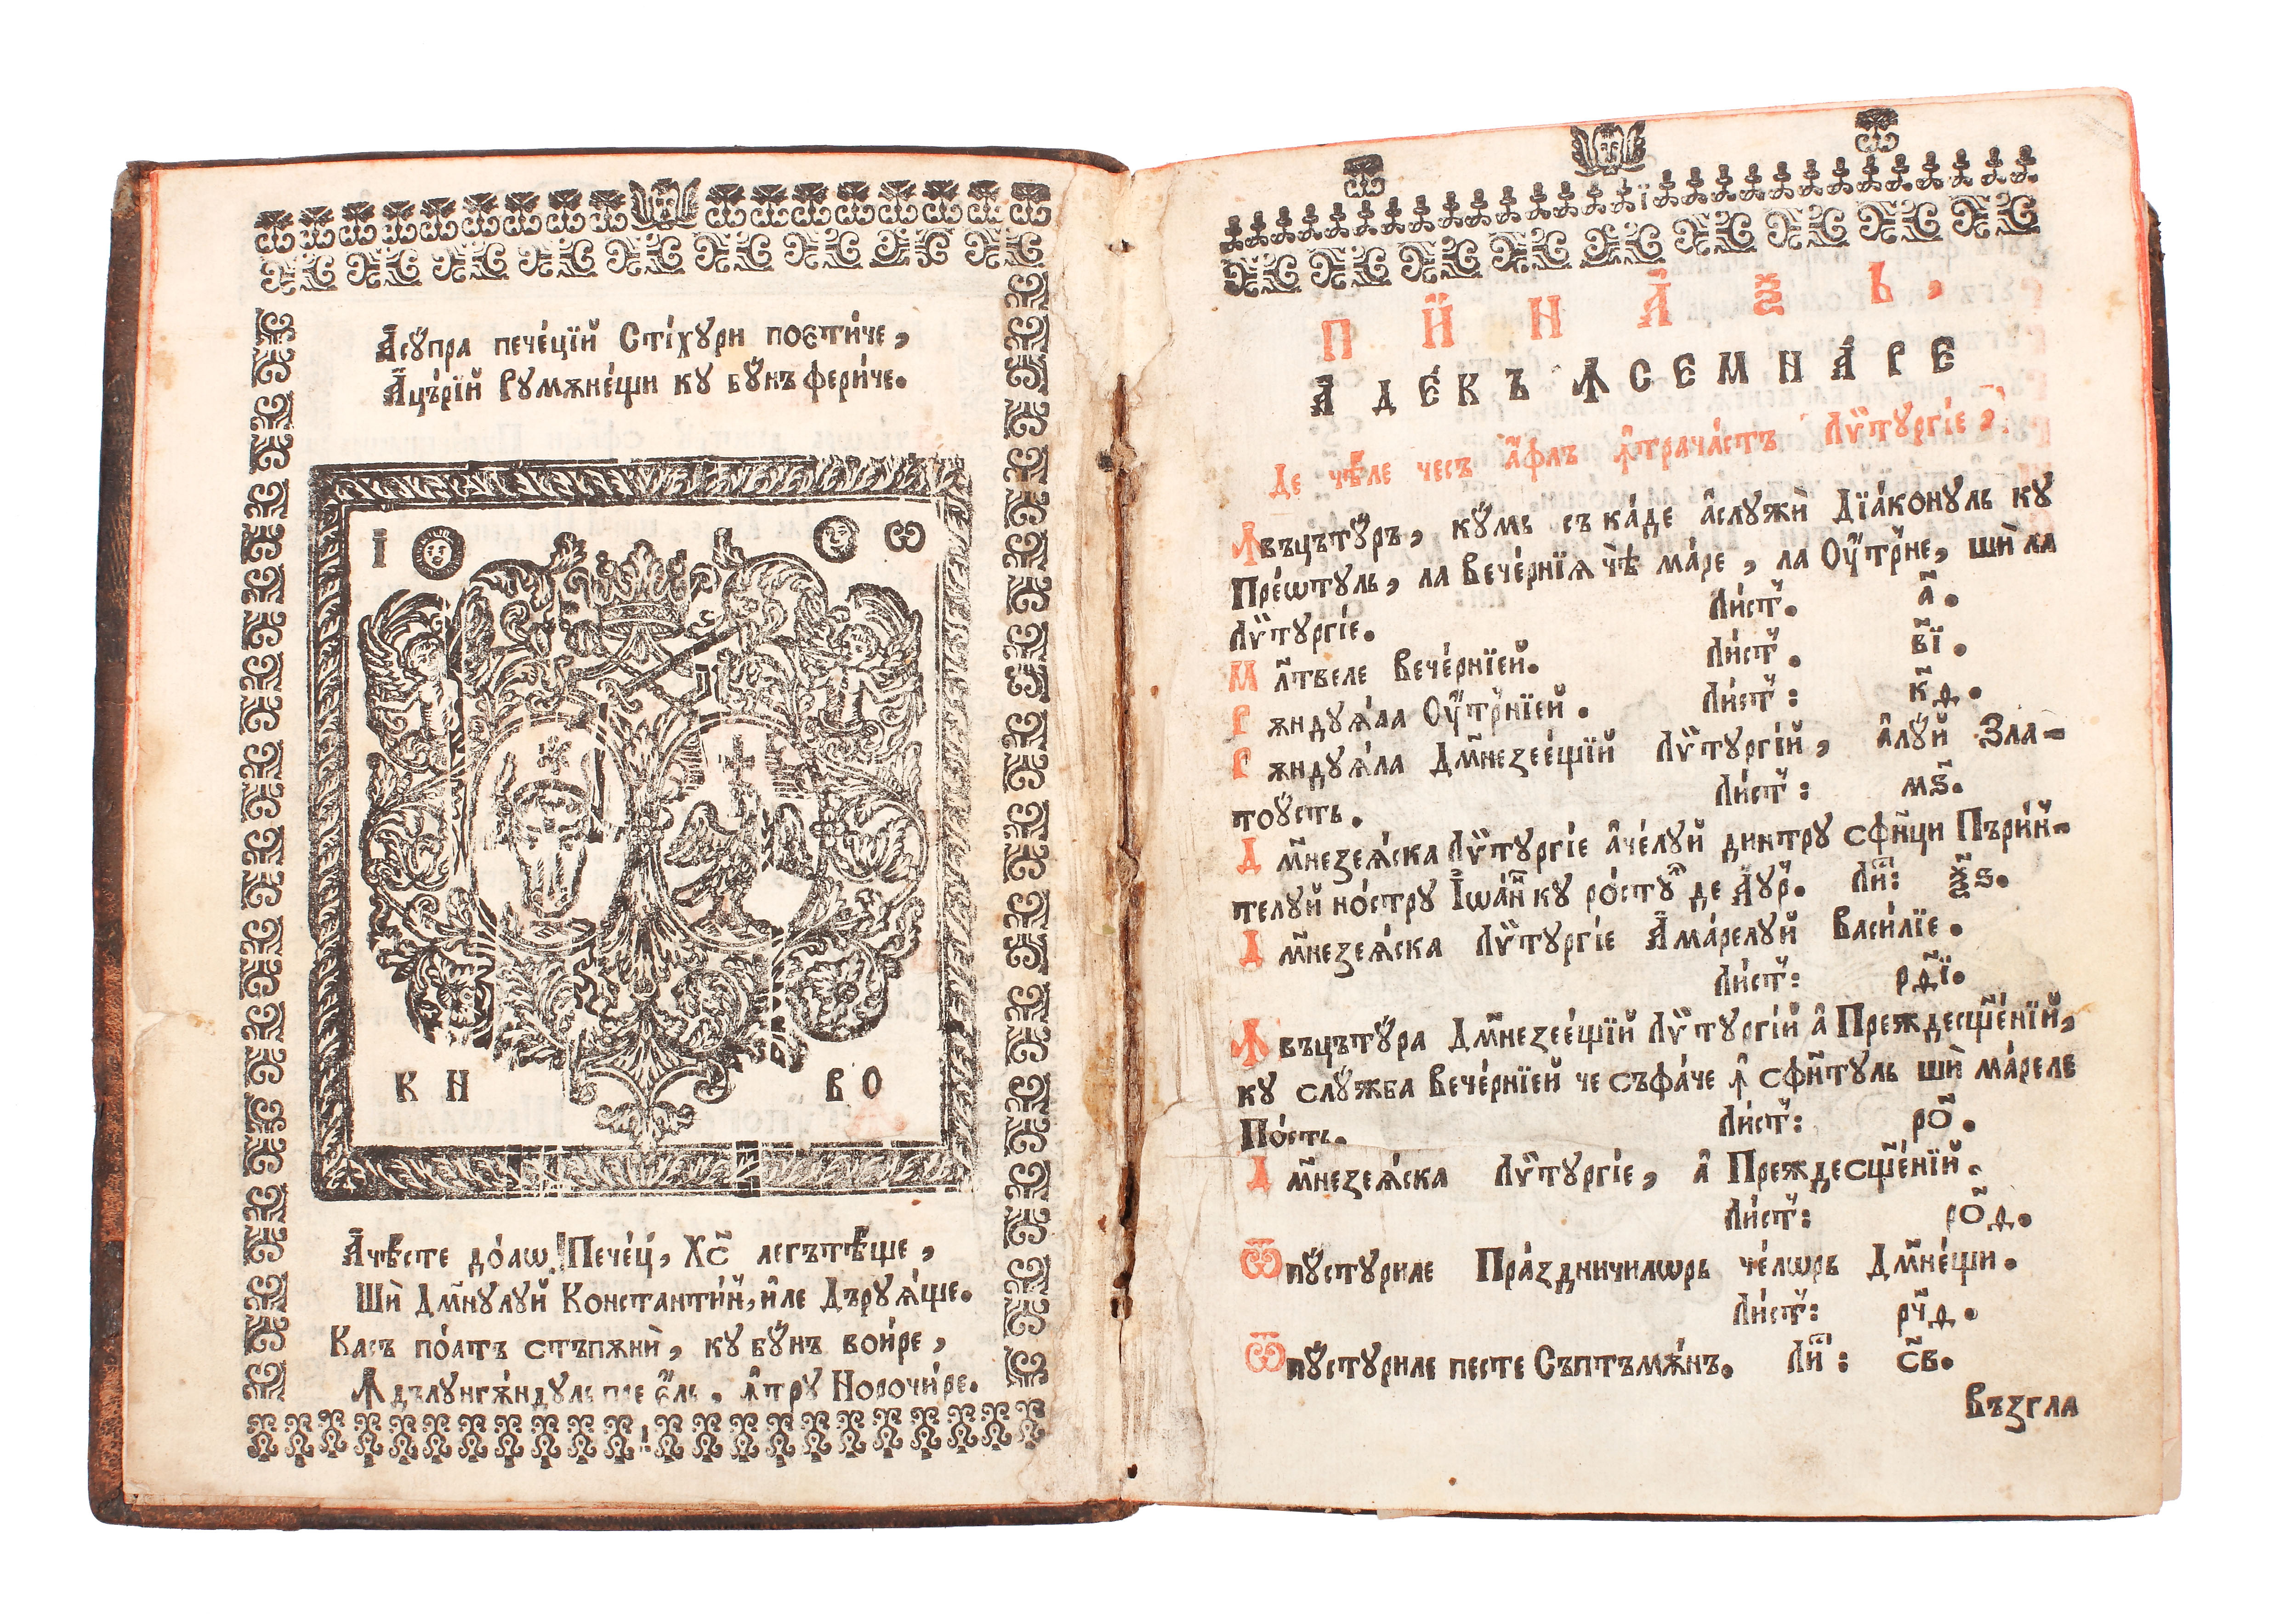 Асꙋ́пра пече́цїй Стїхꙋри поєти́че,
Ацъ́рїй Рꙋмѫне́щи кꙋ бꙋ́нъ фери́че.
І Ѡ
К Н В О
Аче́сте до́аѡ Пече́ц҃и, Хс҃ легътѣ́ще,
Шѝ Дм҃нꙋлꙋй Константи́н, и́ле Дърꙋѧ́ще.
Касъ по́атъ стъпѫнѝ, кꙋ бꙋ́нъ вои́ре,
Ꙟдълꙋнгѫ́ндꙋль пре є́ль, ꙟ̂трꙋ Норочи́ре.
П И Н А Ѯ Ь,
А Д Е К Ъ Ꙟ С Е М Н А Р Е
Де чѣ́ле чесъ а́флъ ꙟ̂трача́стъ Лѷтꙋргі́е,
Ꙟвъцътꙋ́ръ, кꙋ́мь съ ка́де а̂слꙋжѝ Дїа́конꙋль кꙋ
Прео́тꙋль, ла Вече́рнїѧ чѣ ма́ре, ла Оу҆́тр҃не, шѝ ла
Лѷтꙋргі́е. Ли́ст. а҃.
Мл҃твеле Вече́рнїей. Ли́ст. в҃ї.
Рѫндꙋѧ́ла Оу҆́тр҃нїей. Ли́ст: к҃д.
Рѫндꙋѧ́ла Дм҃незее́щїй Лѷтꙋргі́й, а̂лꙋ́й Зла-
тоꙋсть. Ли́ст: мѕ҃.
Дм҃незеѧ́ска Лѷтꙋргі́е а̂че́лꙋй динтрꙋ сфи҃нци Пъри́н-
телꙋй но́стрꙋ Іѡа́н кꙋ ро́стꙋл де Аꙋр. Ли: ѯ҃ѕ.
Дм҃незеѧ́ска Лѷтꙋргі́е Ама́релꙋй Васи́лїе.
Ли́ст: рд҃ї.
Ꙟвъцътꙋ́ра Дм҃незее́щїй Лѷтꙋргі́й а̂ Преждесщ҃е́нїй,
кꙋ слꙋ́жба Вече́рнїей че съфа́че ꙟ̂ сфн҃тꙋль шѝ ма́реле
По́сть. Ли́ст: ро҃.
Дм҃незеѧ́ска Лѷтꙋргі́е, а̂ Преждесщ҃е́нїй.
Ли́ст: ро҃д.
Ѿпꙋ́стꙋриле Пра́здничилѡрь че́лѡрь Дм҃не́щи.
Ли́ст: рч҃д.
Ѿпꙋ́стꙋриле песте Съптъмѫ́нъ. Ли: с҃в.
Възгла